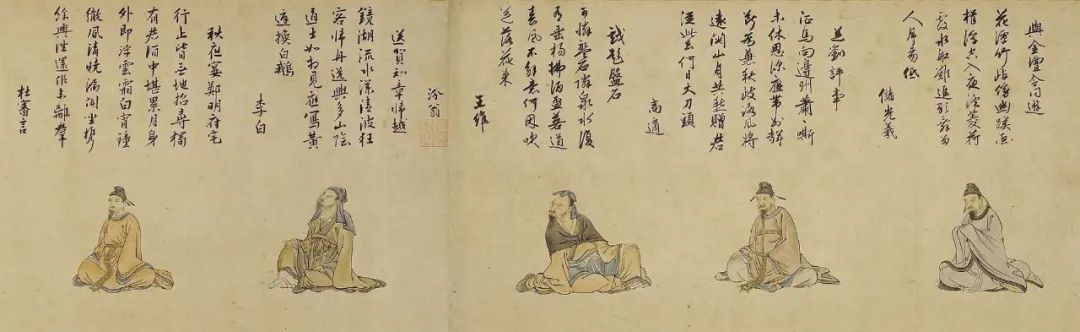 花潭竹嶼傍幽蹊畫
楫浮空入夜溪芰荷
覆水船難進歌舞留
人月易低
儲光羲
送劉評事
征馬向邊州蕭蕭嘶
未休思深應帶別聲
斷為兼秋歧路風將
遠關山月共愁贈君
從此去何日大刀頭
高適
戲題盤石
可憐磐石臨泉水復
有垂楊拂酒盃若道
春風不解意何因吹
送落花來
王維
汾翁
送賀知章歸越
鏡湖流水漾清波狂
客歸舟逸興多山陰
道士如相見應寫黃
庭換白鵝
李白
秋夜宴鄭明府宅
行止皆無地招尋獨
有君酒中堪累月身
外即浮雲露白宵鐘
徹風清曉漏聞坐攜
餘興往還似未離羣
杜審言